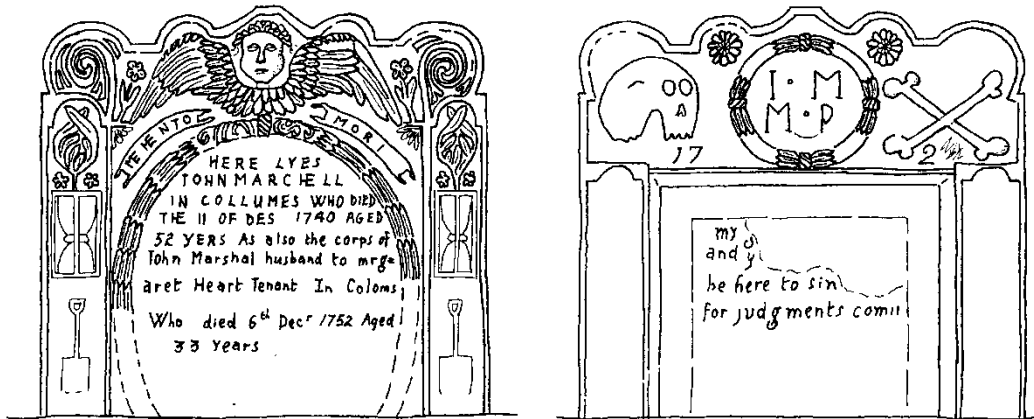 MEMENTO MORI
HERE LYES
JOHN MARCHELL
IN COLLUMES WHO DIED
THE 11 OF DES 1740 AGED
52 YERS As also the corps of
Iohn Marshal husband to mrg=
aret Heart Tenant In Coloms
Who died 6th Decr 1752 Aged
33 Years
I · M
M · P
17 2
my
and sy
be here to sin
for judgments comi